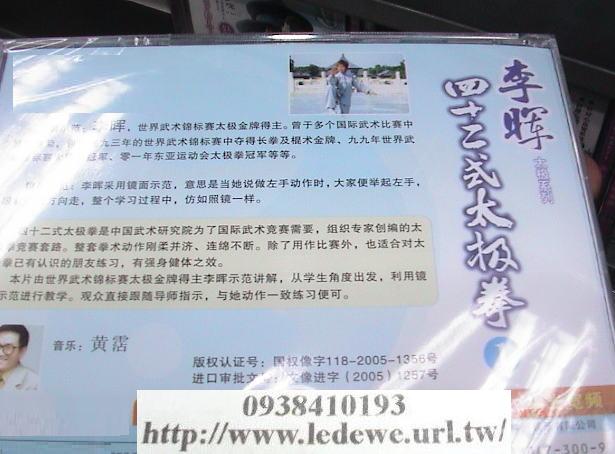 李晖
太极系列
四十二式太极拳
示范：李晖，世界武术锦标赛太极金牌得主。曾于多个国际武术比赛中
九三年的世界武术锦标赛中夺得长拳及棍术金牌、九九年世界武
冠军、零一年东亚运动会太极拳冠军等等。
李晖采用镜面示范，意思是当她说做左手动作时，大家便举起左手，
方向走，整个学习过程中，仿如照镜一样。
四十二式太极拳是中国武术研究院为了国际武术竞赛需要，组织专家创编的太
竞赛套路。整套拳术动作刚柔并济、连绵不断。除了用作比赛外，也适合对太
拳已有认识的朋友练习，有强身健体之效。
本片由世界武术锦标赛太极金牌得主李晖示范讲解，从学生角度出发，利用镜
示范进行教学。观众直接跟随导师指示，与她动作一致练习便可。
音乐：黄霑
版权认证号：国权像字118-2005-1356号
进口审批文号：文像进字（2005）1257号
0938410193
http://www.ledewe.url.tw/